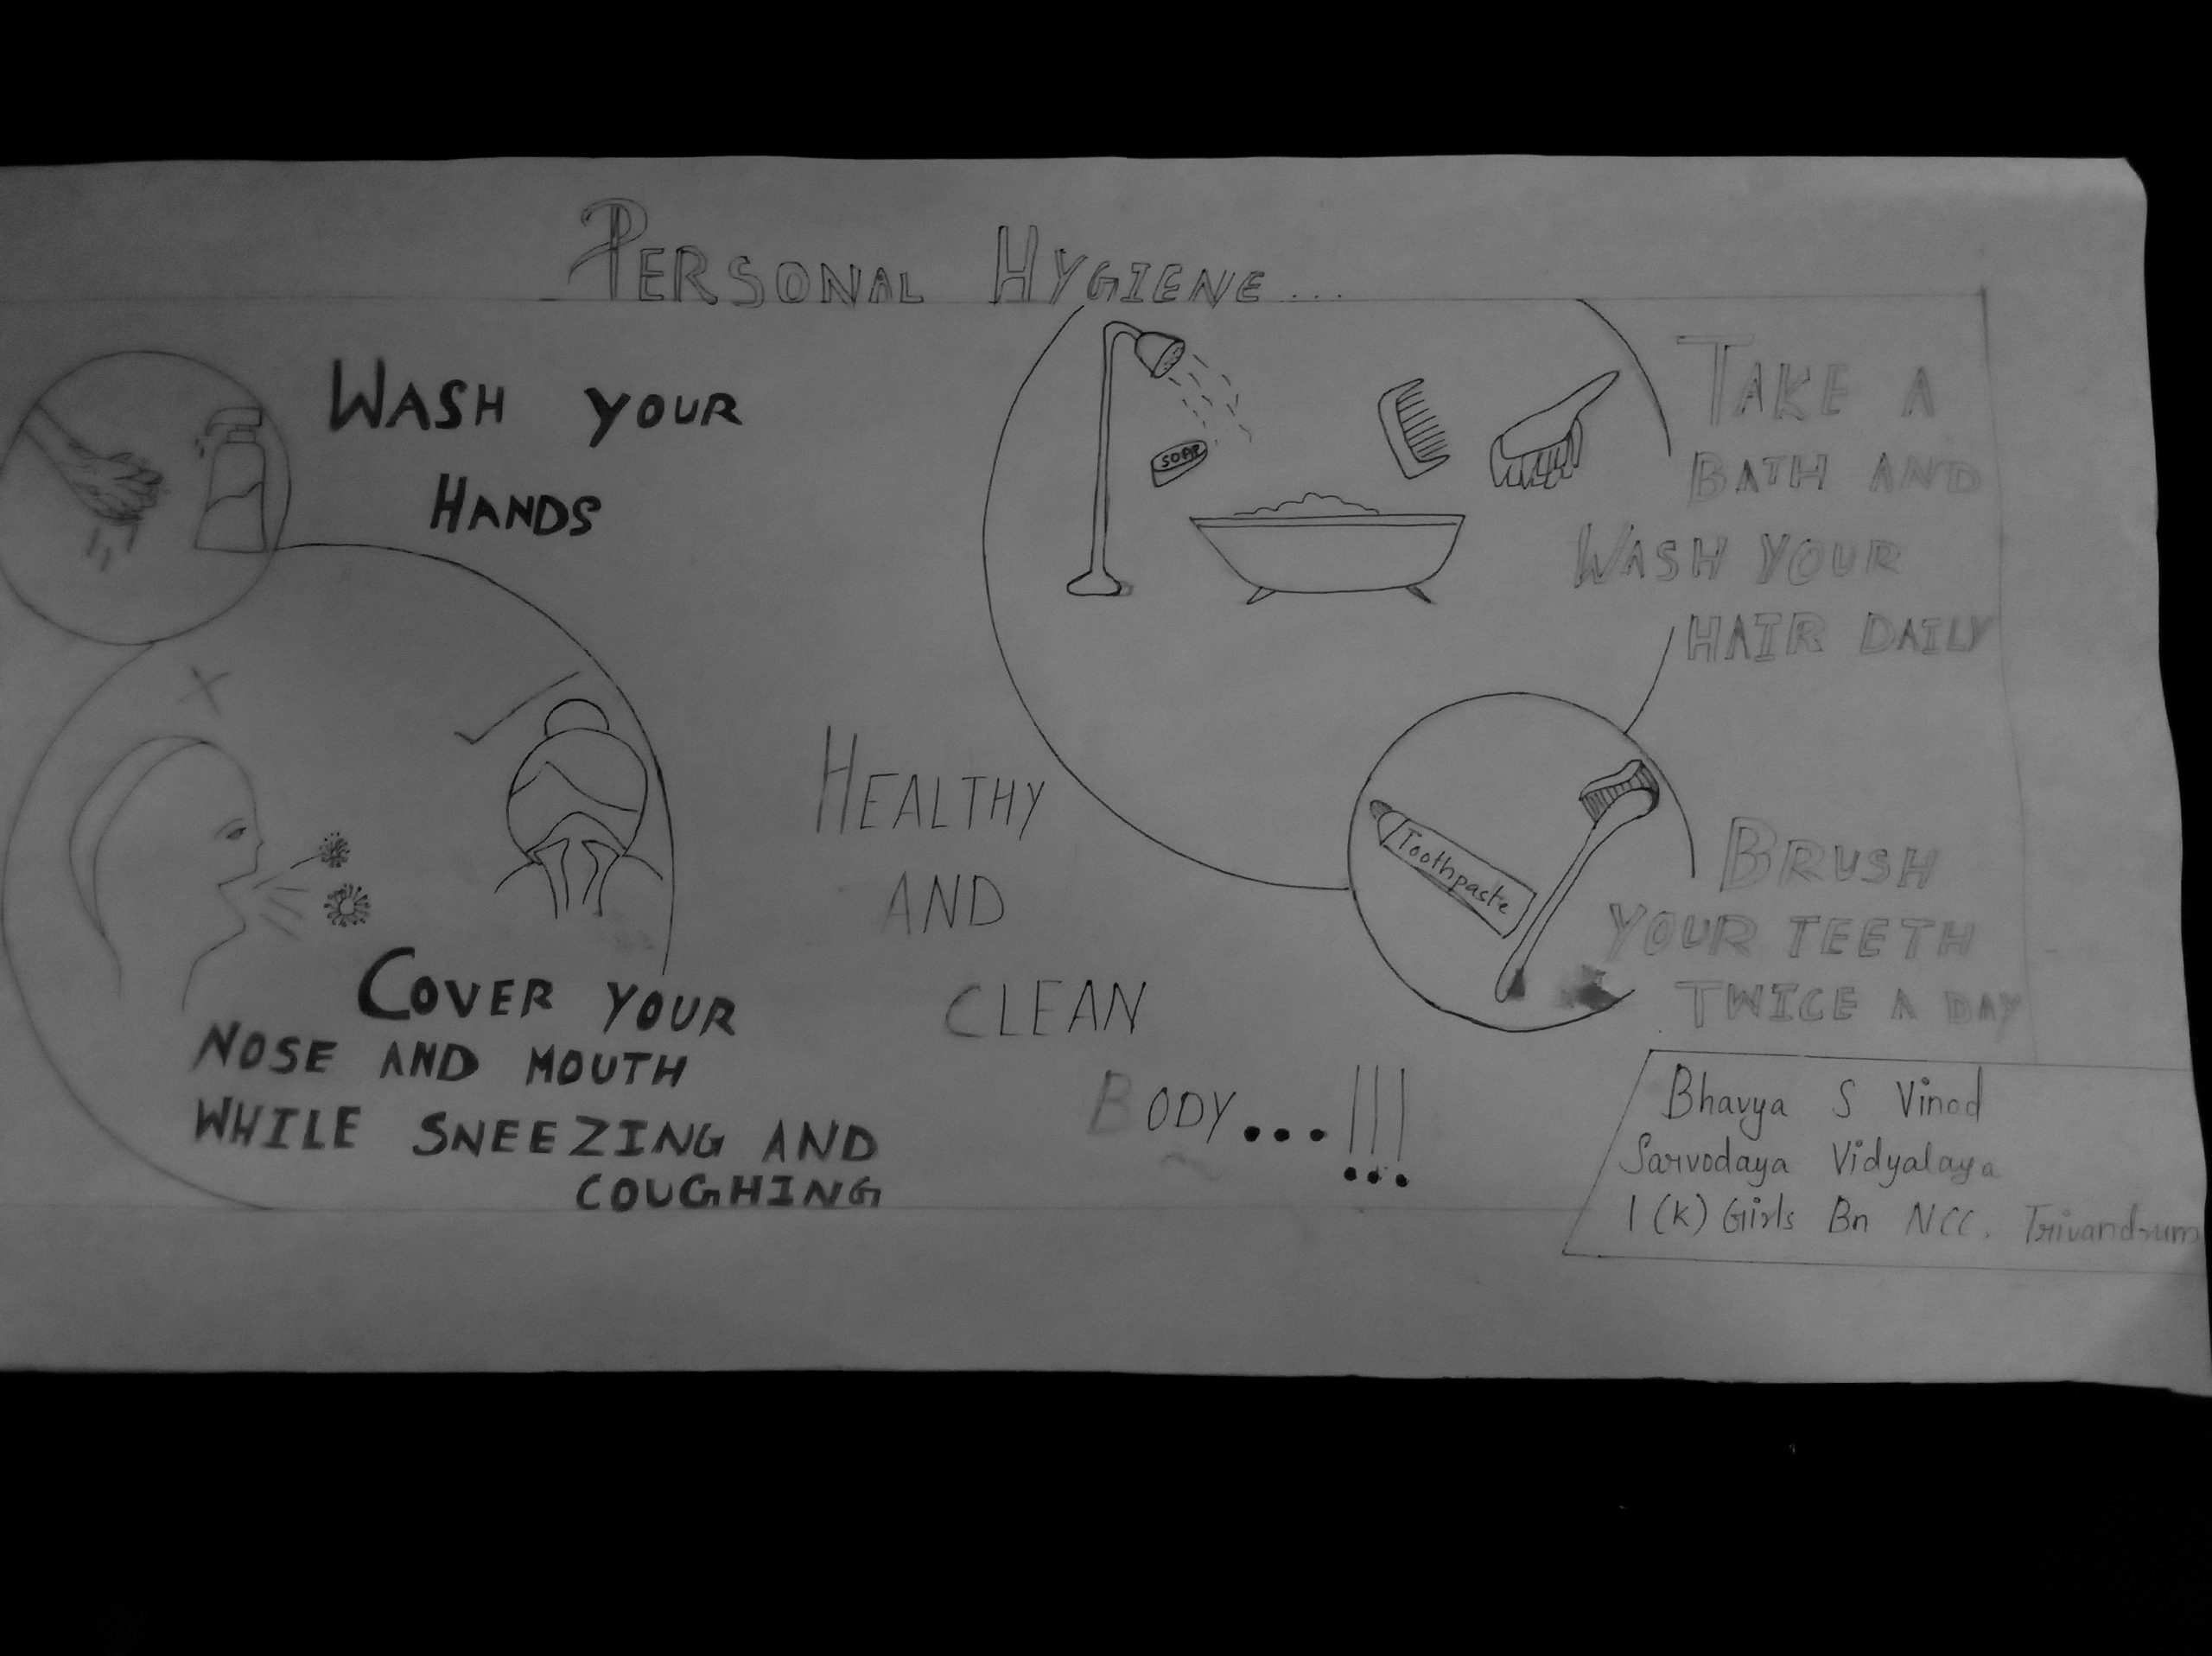 PERSONAL HYGIENE...
WASH YOUR
HANDS
SOAP
TAKE A
BATH AND
WASH YOUR
HAIR DAILY
COVER YOUR
NOSE AND MOUTH
WHILE SNEEZING AND
COUGHING
HEALTHY
AND
CLEAN
BODY...!!!
Toothpaste
BRUSH
YOUR TEETH
TWICE A DAY
Bhavya S Vinod
Sarvodaya Vidyalaya
1 (K) Girls Bn NCC, Trivandrum